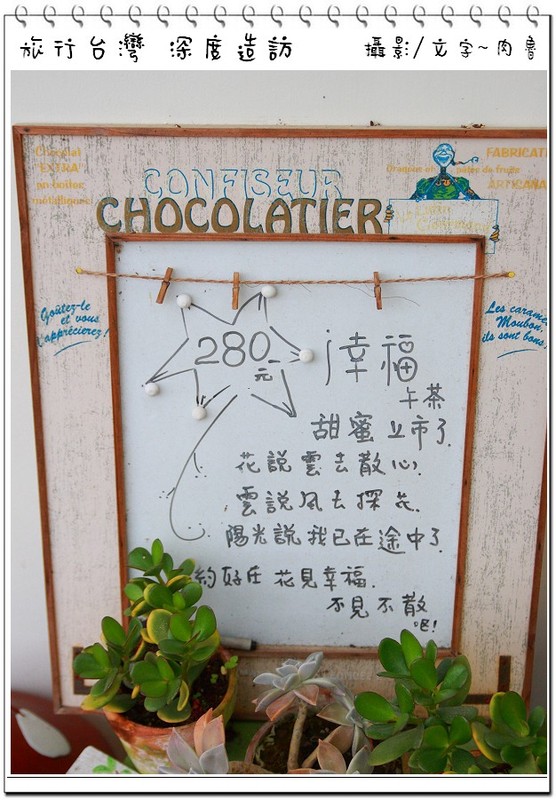 旅行台灣 深度造訪 攝影/文字~肉魯
Chocolat
EXTRA
CONFISEUR
CHOCOLATIER
FABRICATI
pâtes de fruits
ARTISANA
Goûtez-le
et vous
l'apprécierez!
Les carame
Moubon,
ils sont bons!
280元
幸福
午茶
甜蜜上市了
花說雲去散心.
雲說風去探花.
陽光說我已在途中了
約好在花見幸福.
不見不散
吧!